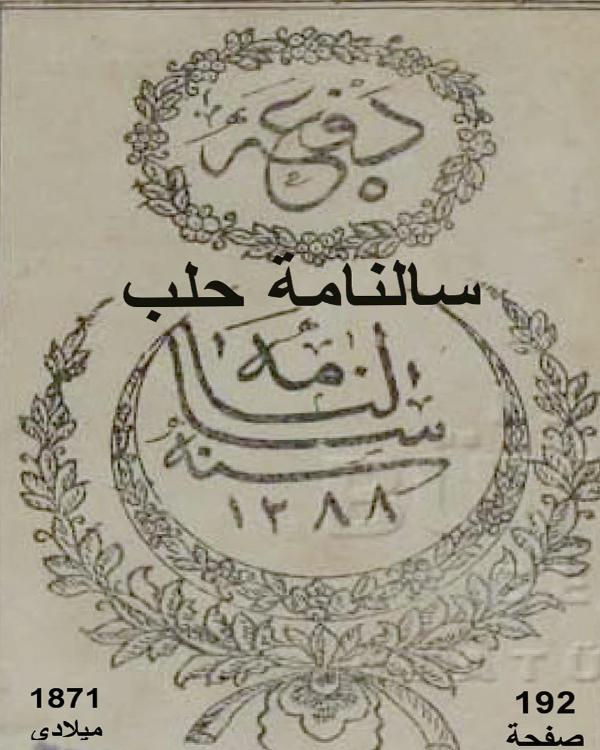 دفعه
سالنامة حلب
سالنامه
سنه
١٢٨٨
1871
ميلادى
192
صفحة